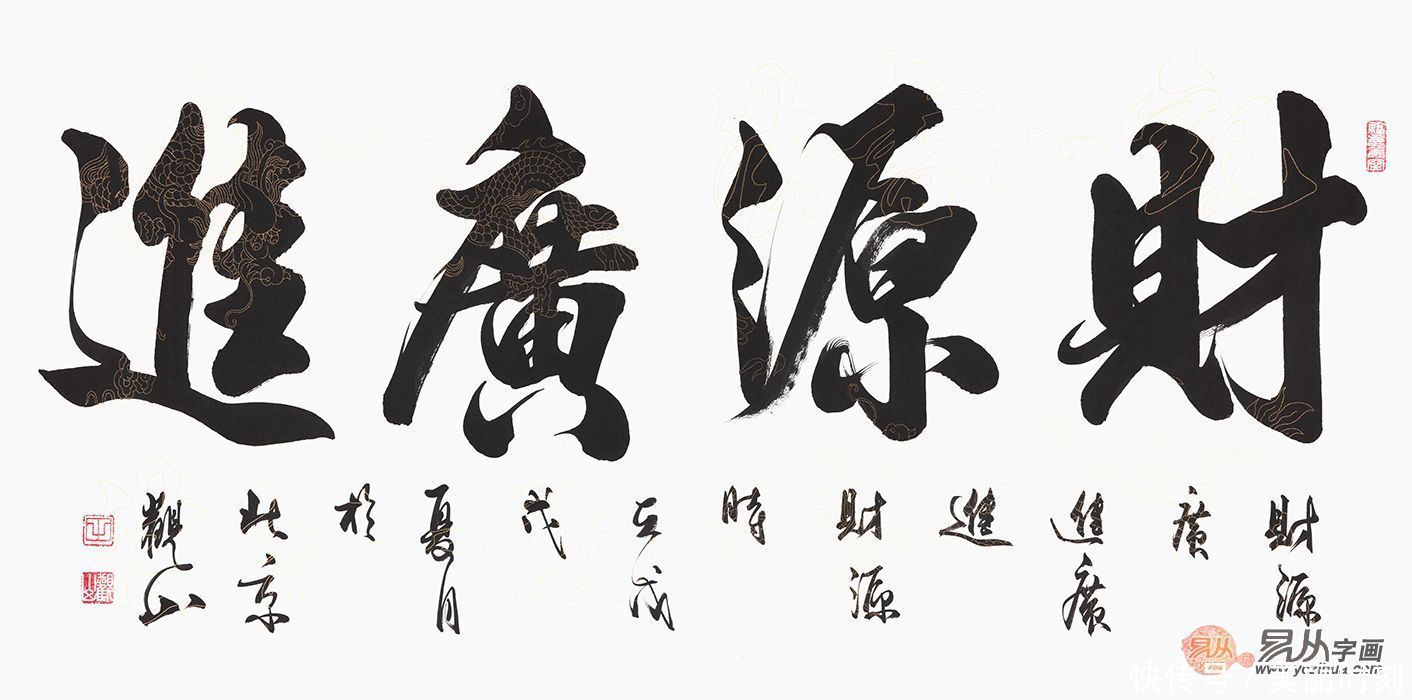 財源廣進
財源
廣
進廣
進
財源
時
在戊
戌
夏月
於
北京
觀山
易从字画
www.yczihua.com
快传号 /